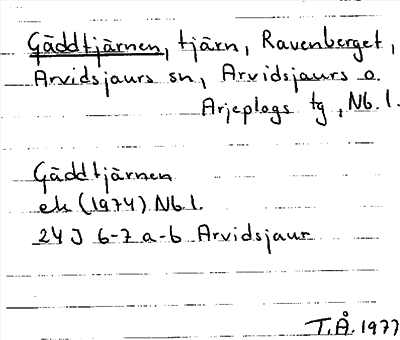 Gäddtjärnen, tjärn, Ravenberget,
Arvidsjaurs sn, Arvidsjaurs o.
Arjeplogs tg, Nb. l.
Gäddtjärnen
ek (1974) Nb l.
24 J 6-7 a-b Arvidsjaur
T.Å. 1977